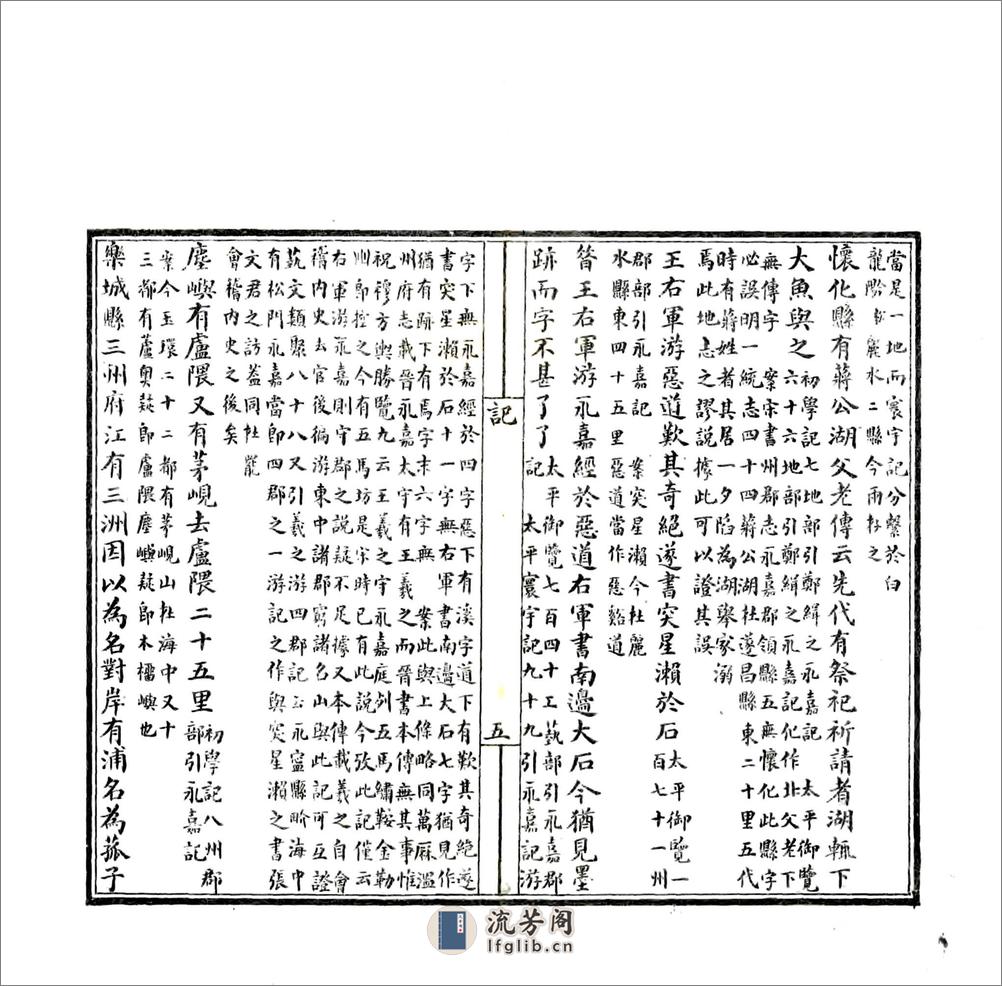 當是一地而寰宇記分繫於白
龍松麗水二縣今兩存之
懷化縣有蔣公湖父老傳云先代有祭祀祈請者湖輒下
大魚與之初學記七地部引鄭緝之永嘉記 太平御覽
六十六地部引鄭緝之永嘉記化作北父老下
無傳字 案宋書州郡志永嘉郡領縣五無懷化此縣字
必誤明一統志四十四蔣公湖在遂昌縣東二十里五代
時有蔣姓者其居一夕陷為湖舉家溺
焉此地志之謬說據此可以證其誤
王右軍游惡道歎其奇絕遂書突星瀨於石太平御覽一
百七十一州
郡部引永嘉記 案突星瀨今在麗
水縣東四十五里惡道當作惡谿道
昔王右軍游永嘉經於惡道右軍書南邊大石今猶見墨
跡而字不甚了了太平御覽七百四十工藝部引永嘉郡
記 太平寰宇記九十九引永嘉記游
記
五
字下無永嘉經於四字惡下有溪字道下有歎其奇絕遂
書突星瀨於石十一字無右軍書南邊大石七字猶見作
猶有跡下有焉字末六字無 案此與上條略同萬厤溫
州府志載晉永嘉太守有王羲之而晉書本傳無其事惟
祝穆方輿勝覽九云王羲之守永嘉庭列五馬繡鞍金勒
出即控之今有五馬坊是宋時已有此說今攷此記僅云
右軍游永嘉則守郡之說疑不足據又本傳載羲之自會
稽內史去官後徧游東中諸郡窮諸名山與此記可互證
蓺文類聚八十八又引羲之游四郡記云永寧縣畍海中
有松門永嘉當即四郡之一游記之作與突星瀨之書張
文君之訪葢同在罷
會稽內史之後矣
塵嶼有盧隈又有茅峴去盧隈二十五里初學記八州郡
部引永嘉記
案今玉環二十二都有茅峴山在海中又十
三都有蘆奧疑即盧隈塵嶼疑即木橊嶼也
樂城縣三州府江有三洲因以為名對岸有浦名為菰子
流芳阁
lfglib.cn